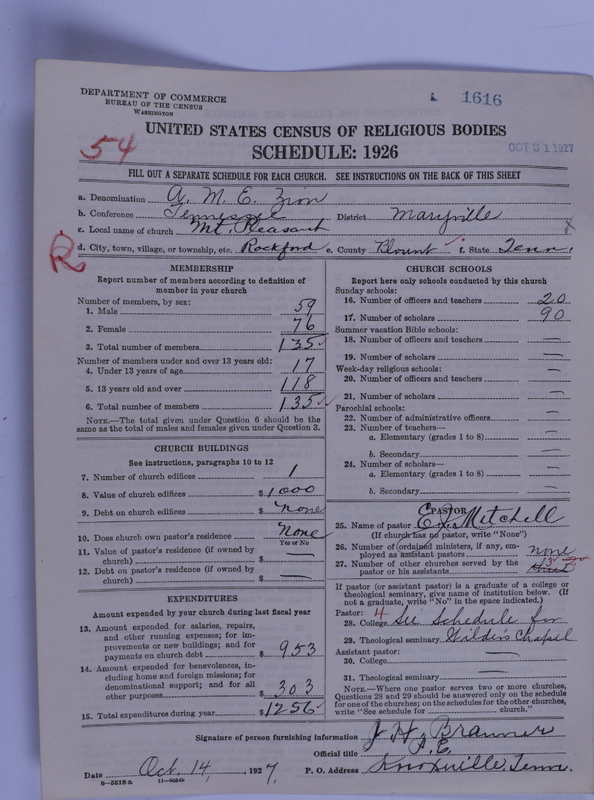 DEPARTMENT OF COMMERCE
BUREAU OF THE CENSUS
WASHINGTON
1616
54
UNITED STATES CENSUS OF RELIGIOUS BODIES
SCHEDULE: 1926
OCT 31 1927
FILL OUT A SEPARATE SCHEDULE FOR EACH CHURCH. SEE INSTRUCTIONS ON THE BACK OF THIS SHEET
a. Denomination A. M. E. Zion
b. Conference Tennessee District Maryville
c. Local name of church Mt. Pleasant
d. City, town, village, or township, etc. Rockford e. County Blount f. State Tenn.
R
MEMBERSHIP
Report number of members according to definition of
member in your church
Number of members, by sex:
1. Male 59
2. Female 76
3. Total number of members 135
Number of members under and over 13 years old:
4. Under 13 years of age 17
5. 13 years old and over 118
6. Total number of members 135
NOTE.—The total given under Question 6 should be the
same as the total of males and females given under Question 3.
CHURCH BUILDINGS
See instructions, paragraphs 10 to 12
7. Number of church edifices 1
8. Value of church edifices $1000
9. Debt on church edifices $none
10. Does church own pastor's residence None
Yes or No
11. Value of pastor's residence (if owned by
church) $ —
12. Debt on pastor's residence (if owned by
church) $ —
EXPENDITURES
Amount expended by your church during last fiscal year
13. Amount expended for salaries, repairs,
and other running expenses; for im-
provements or new buildings; and for
payments on church debt $ 953
14. Amount expended for benevolences, in-
cluding home and foreign missions; for
denominational support; and for all
other purposes $ 303
15. Total expenditures during year $1256
CHURCH SCHOOLS
Report here only schools conducted by this church
Sunday schools:
16. Number of officers and teachers 20
17. Number of scholars 90
Summer vacation Bible schools:
18. Number of officers and teachers —
19. Number of scholars —
Week-day religious schools:
20. Number of officers and teachers —
21. Number of scholars —
Parochial schools:
22. Number of administrative officers —
23. Number of teachers—
a. Elementary (grades 1 to 8) —
b. Secondary —
24. Number of scholars—
a. Elementary (grades 1 to 8) —
b. Secondary —
PASTOR
25. Name of pastor Mitchell
(If church has no pastor, write "None")
26. Number of (ordained ministers, if any, em-
ployed as assistant pastors none
27. Number of other churches served by the
pastor or his assistants
If pastor (or assistant pastor) is a graduate of a college or
theological seminary, give name of institution below. (If
not a graduate, write "No" in the space indicated.)
Pastor: 4
28. College See Schedule for
29. Theological seminary Wilders Chapel
Assistant pastor:
30. College —
31. Theological seminary —
NOTE.—Where one pastor serves two or more churches,
Questions 28 and 29 should be answered only on the schedule
for one of the churches; on the schedules for the other churches,
write "See schedule for church."
Signature of person furnishing information J. H. Branner
Official title P. E.
Date Oct. 14, 1927. P. O. Address Knoxville, Tenn.
8—5518a